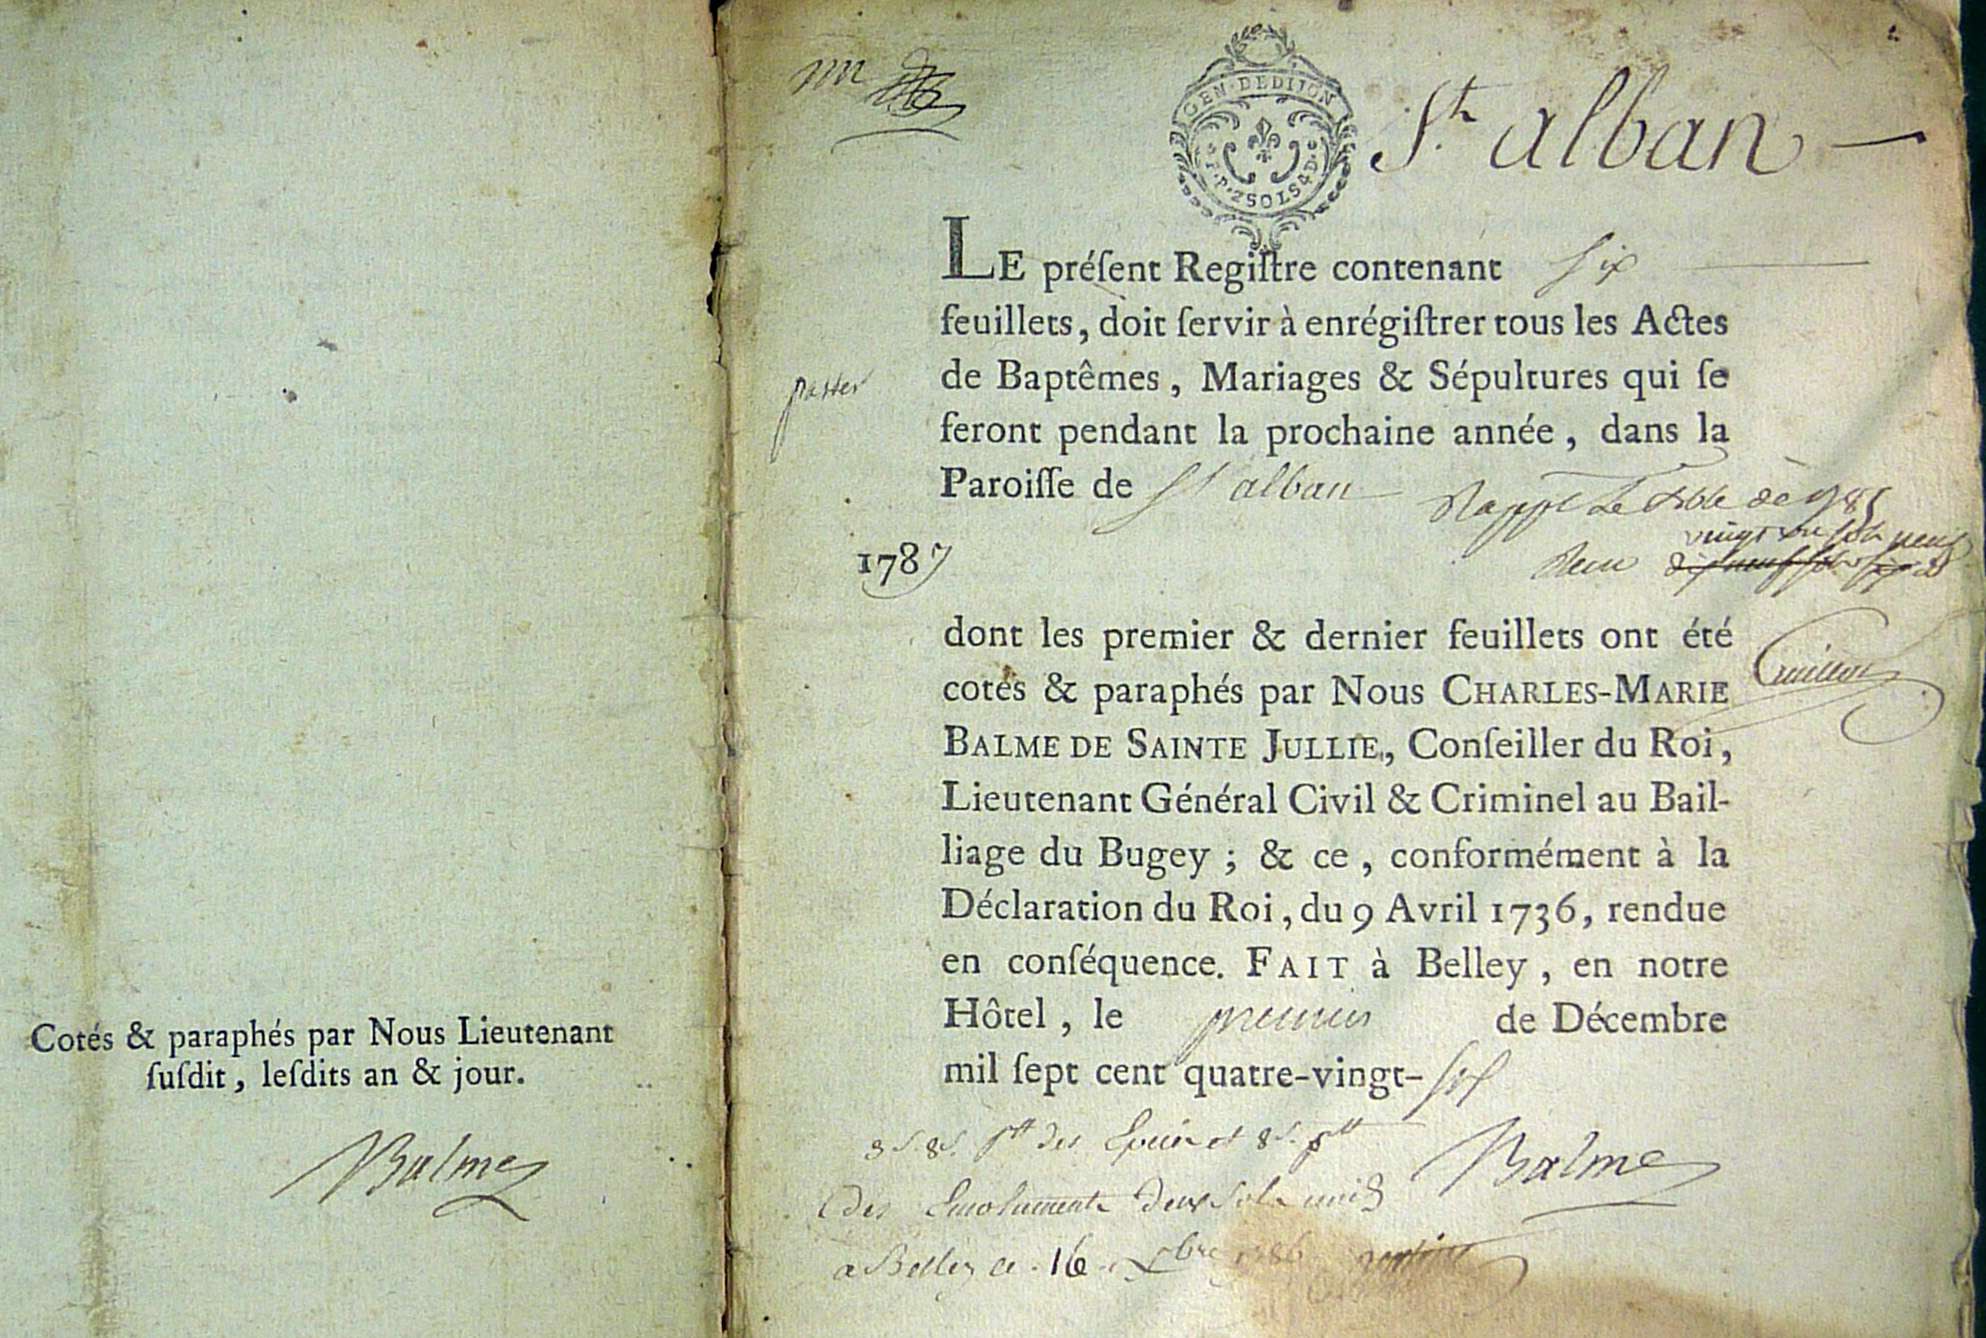 Cotés & paraphés par Nous Lieutenant
ſuſdit, leſdits an & jour.
Balme
GEN · DEDIJON
2SOLS4D
St. alban
LE préſent Regiſtre contenant six
feuillets, doit ſervir à enrégiſtrer tous les Actes
de Baptêmes, Mariages & Sépultures qui ſe
feront pendant la prochaine année, dans la
Paroiſſe de St alban
1787
dont les premier & dernier feuillets ont été
cotés & paraphés par Nous CHARLES-MARIE
BALME DE SAINTE JULLIE, Conſeiller du Roi,
Lieutenant Général Civil & Criminel au Bail-
liage du Bugey ; & ce, conformément à la
Déclaration du Roi, du 9 Avril 1736, rendue
en conſéquence. FAIT à Belley, en notre
Hôtel, le premier de Décembre
mil ſept cent quatre-vingt-six
Balme
des Emoluments deux sols
a Belley ce 16 1786